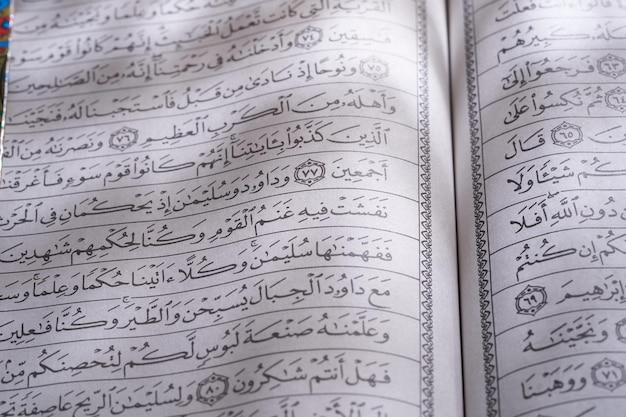 قَالُوٓا۟ ءَأَنتَ فَعَلْتَ
كَبِيرُهُمْ
﴿٦٣﴾ فَرَجَعُوٓا۟ إِلَىٰٓ
﴿٦٤﴾ ثُمَّ نُكِسُوا۟ عَلَىٰ
﴿٦٥﴾ قَالَ
كُمْ شَيْـًٔا وَلَا
دُونِ ٱللَّهِ أَفَلَا
كُمْ إِن كُنتُمْ
إِبْرَٰهِيمَ ﴿٦٩﴾
وَنَجَّيْنَٰهُ
﴿٧١﴾ وَوَهَبْنَا
ٱلْقَرْيَةِ ٱلَّتِى كَانَت تَّعْمَلُ ٱلْخَبَٰٓئِثَ إِنَّهُمْ كَانُوا۟ قَوْمَ سَوْءٍ
فَٰسِقِينَ ﴿٧٤﴾ وَأَدْخَلْنَٰهُ فِى رَحْمَتِنَآ إِنَّهُۥ مِنَ ٱلصَّٰلِحِينَ
﴿٧٥﴾ وَنُوحًا إِذْ نَادَىٰ مِن قَبْلُ فَٱسْتَجَبْنَا لَهُۥ فَنَجَّيْنَٰهُ
وَأَهْلَهُۥ مِنَ ٱلْكَرْبِ ٱلْعَظِيمِ ﴿٧٦﴾ وَنَصَرْنَٰهُ مِنَ ٱلْقَوْمِ
ٱلَّذِينَ كَذَّبُوا۟ بِـَٔايَٰتِنَآ إِنَّهُمْ كَانُوا۟ قَوْمَ سَوْءٍ فَأَغْرَقْنَٰهُمْ
أَجْمَعِينَ ﴿٧٧﴾ وَدَاوُۥدَ وَسُلَيْمَٰنَ إِذْ يَحْكُمَانِ فِى ٱلْحَرْثِ
نَفَشَتْ فِيهِ غَنَمُ ٱلْقَوْمِ وَكُنَّا لِحُكْمِهِمْ شَٰهِدِينَ
فَفَهَّمْنَٰهَا سُلَيْمَٰنَ وَكُلًّا ءَاتَيْنَا حُكْمًا وَعِلْمًا وَسَخَّرْنَا
مَعَ دَاوُۥدَ ٱلْجِبَالَ يُسَبِّحْنَ وَٱلطَّيْرَ وَكُنَّا فَٰعِلِينَ
وَعَلَّمْنَٰهُ صَنْعَةَ لَبُوسٍ لَّكُمْ لِتُحْصِنَكُم مِّنۢ
فَهَلْ أَنتُمْ شَٰكِرُونَ ﴿٨٠﴾ وَلِسُلَيْمَٰنَ ٱلرِّيحَ عَاصِفَةً